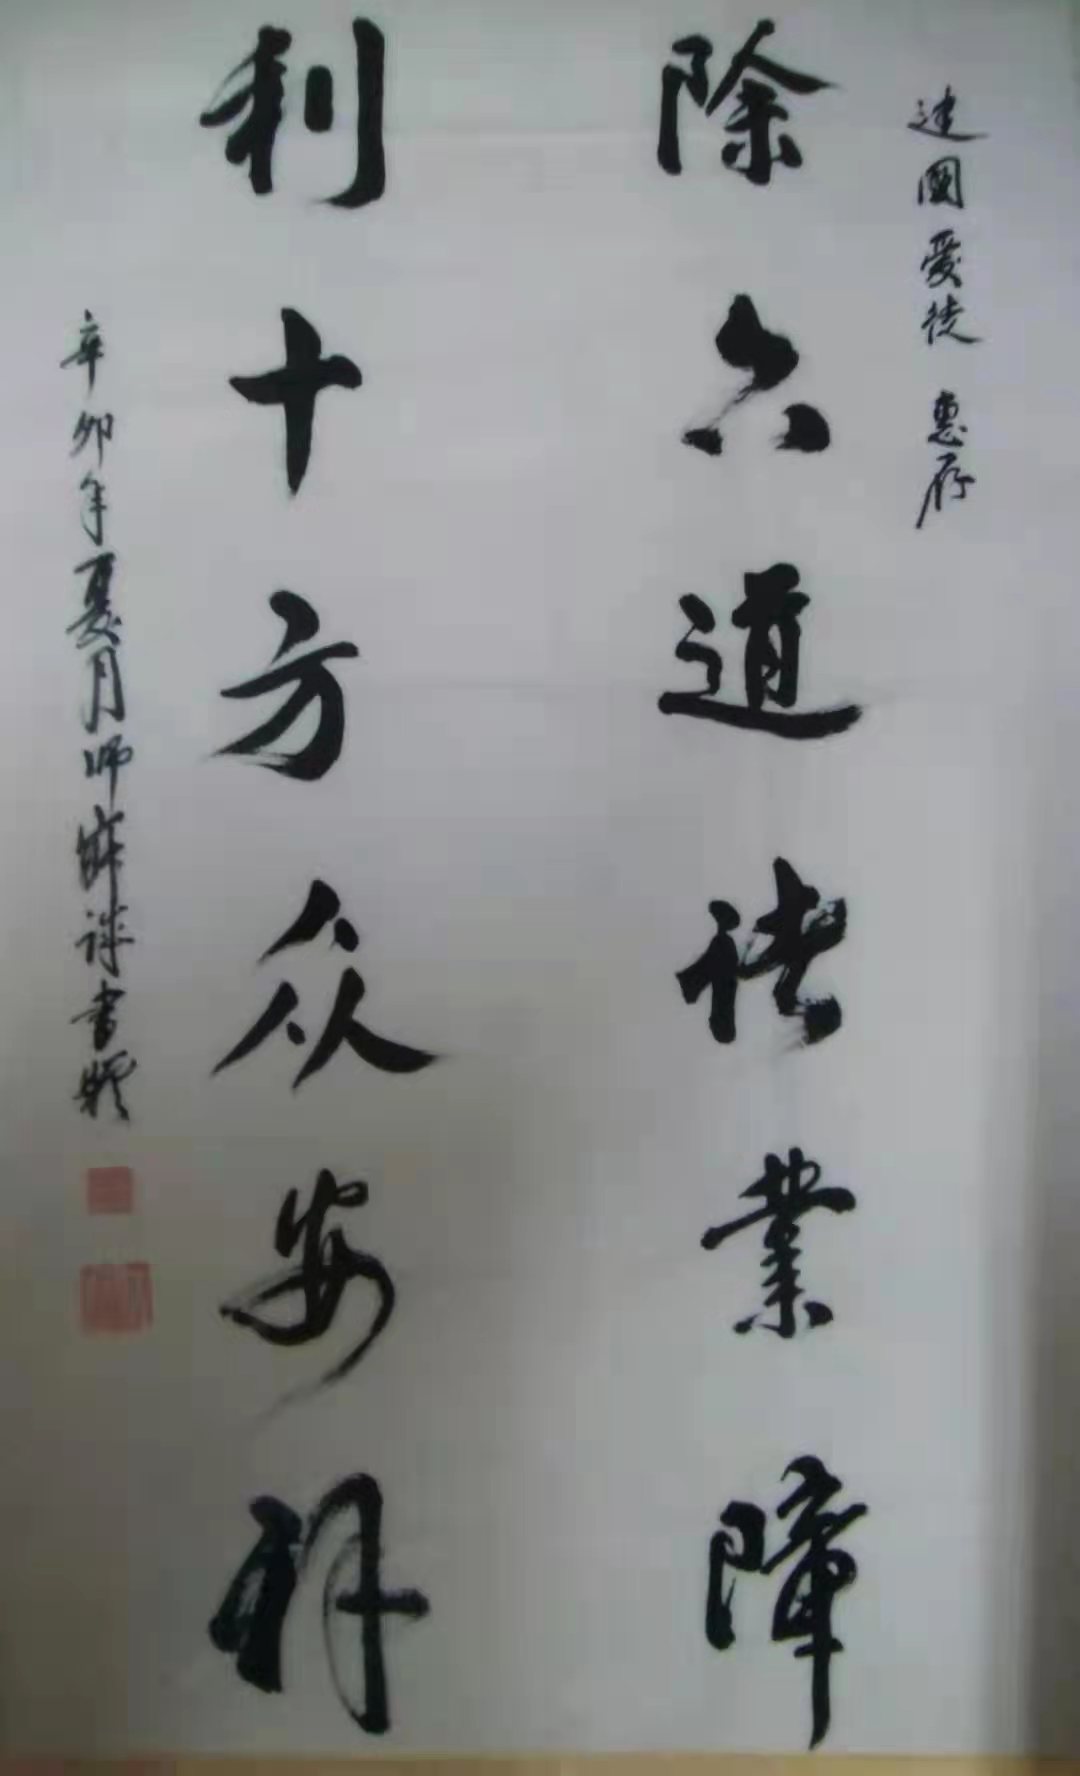 建國愛徒 惠存
除六道诸業障
利十方众安
辛卯年夏月师書